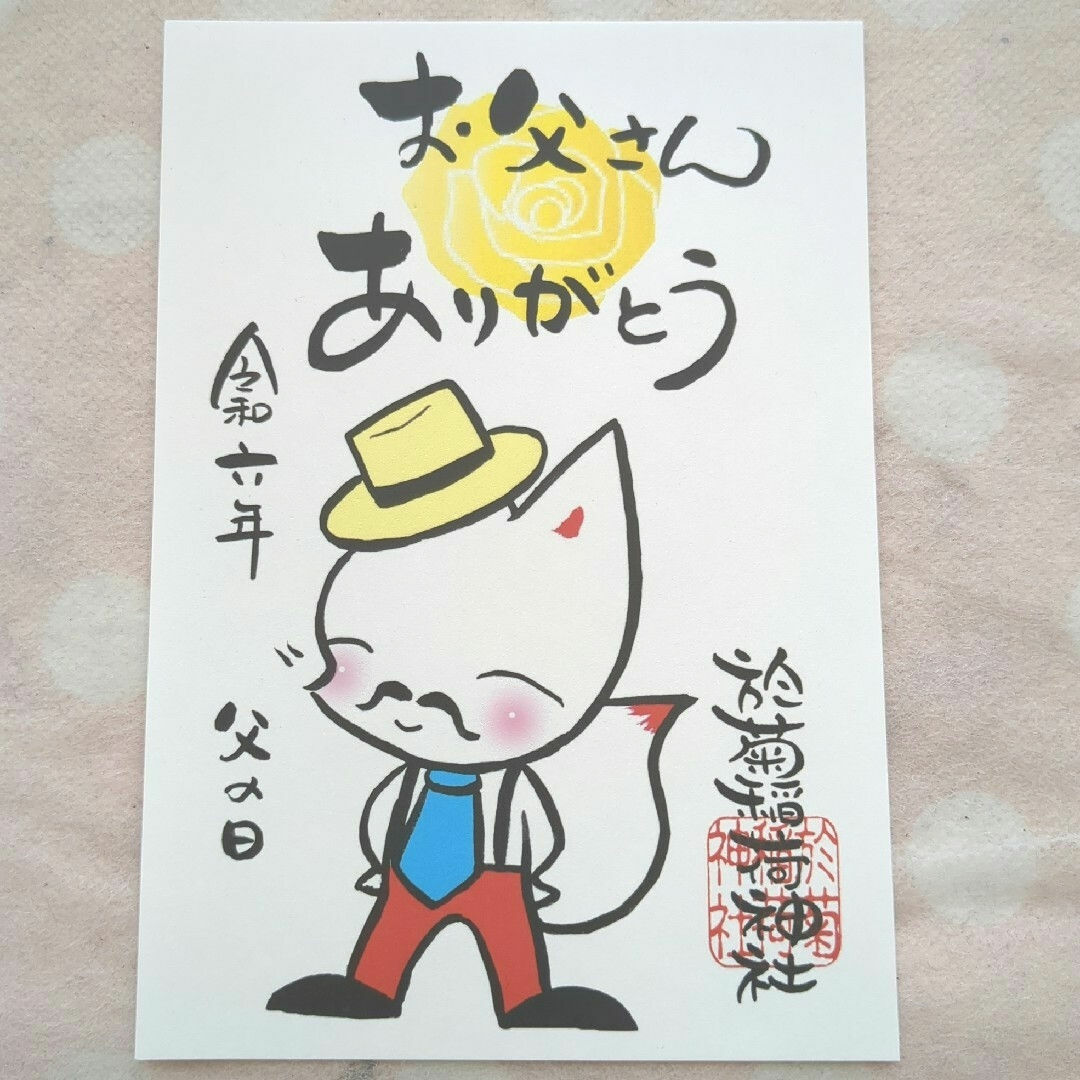 お父さん
ありがとう
令和六年
父の日
於菊稲荷神社
於菊
稲荷
神社